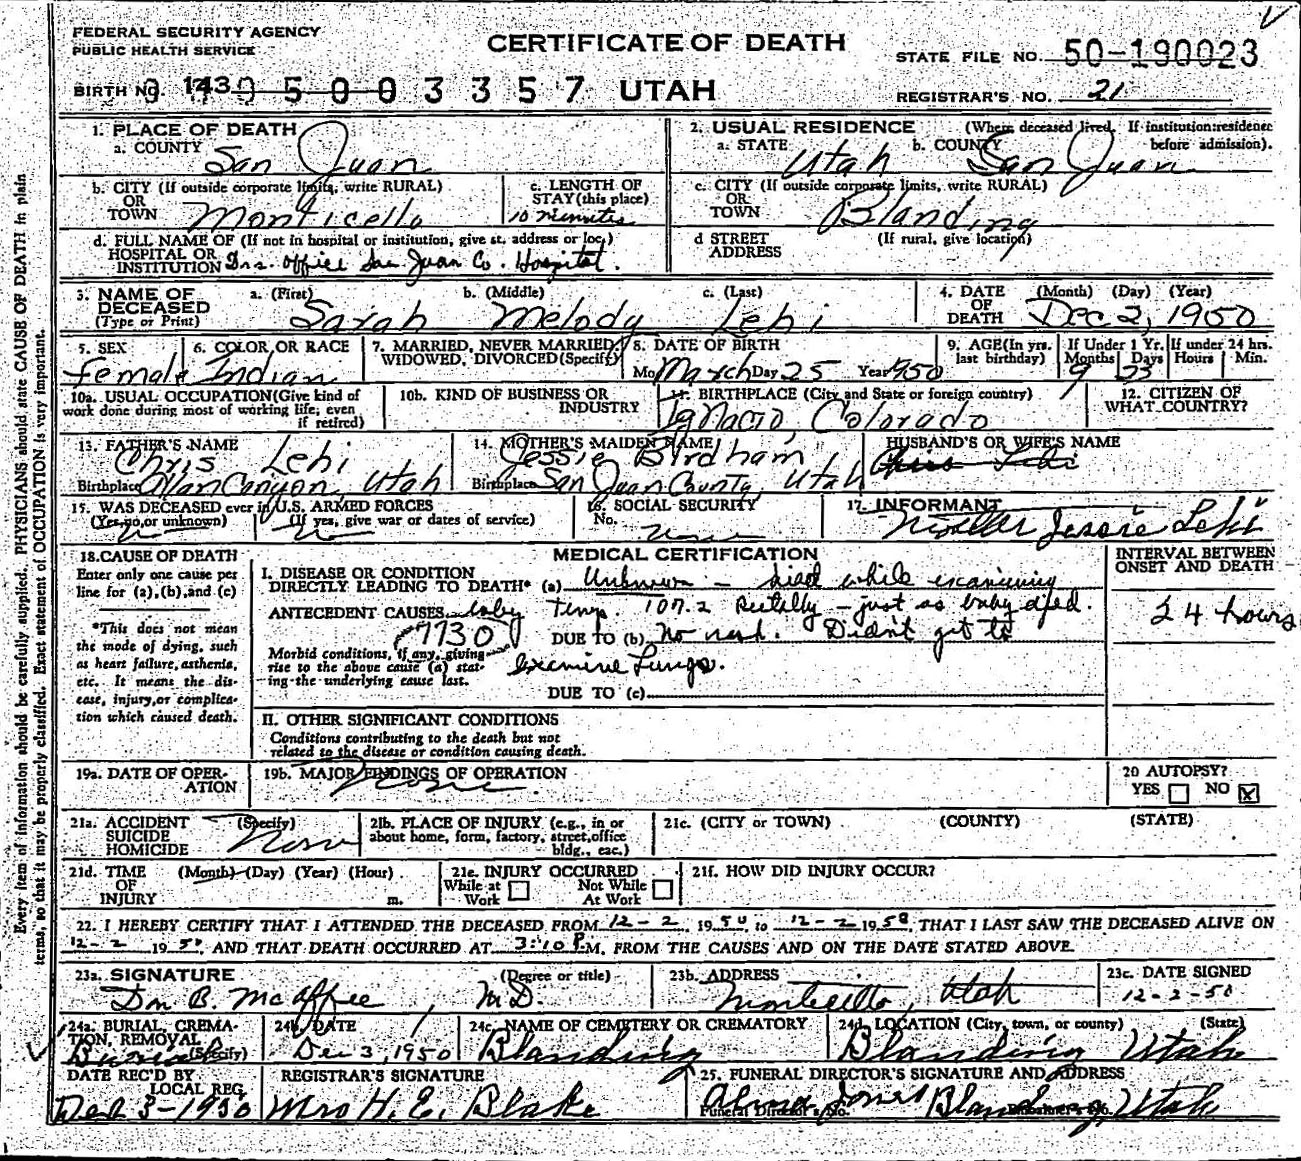 FEDERAL SECURITY AGENCY
PUBLIC HEALTH SERVICE
CERTIFICATE OF DEATH
STATE FILE NO. 50-190023
BIRTH NO. 143 5003357 UTAH
REGISTRAR'S NO. 21
Every item of information should be carefully supplied. PHYSICIANS should state CAUSE OF DEATH in plain
terms, so that it may be properly classified. Exact statement of OCCUPATION is very important.
1. PLACE OF DEATH
a. COUNTY San Juan
2. USUAL RESIDENCE (Where deceased lived. If institution: residence before admission).
a. STATE Utah b. COUNTY San Juan
b. CITY (If outside corporate limits, write RURAL)
OR
TOWN Monticello
c. LENGTH OF
STAY (this place)
10 minutes
c. CITY (If outside corporate limits, write RURAL)
OR
TOWN Blanding
d. FULL NAME OF (If not in hospital or institution, give st. address or loc.)
HOSPITAL OR
INSTITUTION Drs. office San Juan Co. Hospital.
d STREET (If rural, give location)
ADDRESS
3. NAME OF DECEASED
(Type or Print)
a. (First) b. (Middle) c. (Last)
Sarah Melody Lehi
4. DATE OF DEATH (Month) (Day) (Year)
Dec 2, 1950
5. SEX
female
6. COLOR OR RACE
Indian
7. MARRIED, NEVER MARRIED,
WIDOWED, DIVORCED (Specify)
8. DATE OF BIRTH
Mo March Day 25 Year 1950
9. AGE (In yrs. last birthday)
If Under 1 Yr. Months Days
9 23
If under 24 hrs. Hours Min.
10a. USUAL OCCUPATION (Give kind of
work done during most of working life, even
if retired)
10b. KIND OF BUSINESS OR
INDUSTRY
11. BIRTHPLACE (City and State or foreign country)
Ignacio, Colorado
12. CITIZEN OF
WHAT COUNTRY?
13. FATHER'S NAME
Chris Lehi
Birthplace Allan Canyon, Utah
14. MOTHER'S MAIDEN NAME
Jessie Birdham
Birthplace San Juan County, Utah
HUSBAND'S OR WIFE'S NAME
Chris Lehi
15. WAS DECEASED ever in U.S. ARMED FORCES
(Yes, no, or unknown) (If yes, give war or dates of service)
16. SOCIAL SECURITY
No. None
17. INFORMANT
Mother Jessie Lehi
18. CAUSE OF DEATH
Enter only one cause per
line for (a), (b), and (c)
*This does not mean
the mode of dying, such
as heart failure, asthenia,
etc. It means the dis-
ease, injury, or complica-
tion which caused death.
MEDICAL CERTIFICATION
INTERVAL BETWEEN
ONSET AND DEATH
24 hours
I. DISEASE OR CONDITION
DIRECTLY LEADING TO DEATH* (a) Unknown - died while examining
ANTECEDENT CAUSES baby temp. 107.2 Rectally - just as baby died.
7730
DUE TO (b) No rash. Didn't get to
Morbid conditions, if any, giving
rise to the above cause (a) stat-
ing the underlying cause last.
examine Lungs.
DUE TO (c)
II. OTHER SIGNIFICANT CONDITIONS
Conditions contributing to the death but not
related to the disease or condition causing death.
19a. DATE OF OPER-
ATION
19b. MAJOR FINDINGS OF OPERATION
None
20 AUTOPSY?
YES NO X
21a. ACCIDENT (Specify)
SUICIDE
HOMICIDE None
21b. PLACE OF INJURY (e.g., in or
about home, form, factory, street, office
bldg., eac.)
21c. (CITY or TOWN) (COUNTY) (STATE)
21d. TIME (Month) (Day) (Year) (Hour)
OF
INJURY m.
21e. INJURY OCCURRED
While at Work Not While At Work
21f. HOW DID INJURY OCCUR?
22. I HEREBY CERTIFY THAT I ATTENDED THE DECEASED FROM 12-2, 1950 to 12-2 1950 THAT I LAST SAW THE DECEASED ALIVE ON
12-2 1950, AND THAT DEATH OCCURRED AT 3:10 P M, FROM THE CAUSES AND ON THE DATE STATED ABOVE.
23a. SIGNATURE (Degree or title)
B. McAffee, M.D.
23b. ADDRESS
Monticello, Utah
23c. DATE SIGNED
12-2-50
24a. BURIAL, CREMA-
TION, REMOVAL
(Specify) Burial
24b. DATE
Dec 3, 1950
24c. NAME OF CEMETERY OR CREMATORY
Blanding
24d. LOCATION (City, town, or county) (State)
Blanding Utah
DATE REC'D BY
LOCAL REG.
Dec 3-1950
REGISTRAR'S SIGNATURE
Mrs H. E. Blake
25. FUNERAL DIRECTOR'S SIGNATURE AND ADDRESS
Jones Blanding, Utah
Funeral Director's No.